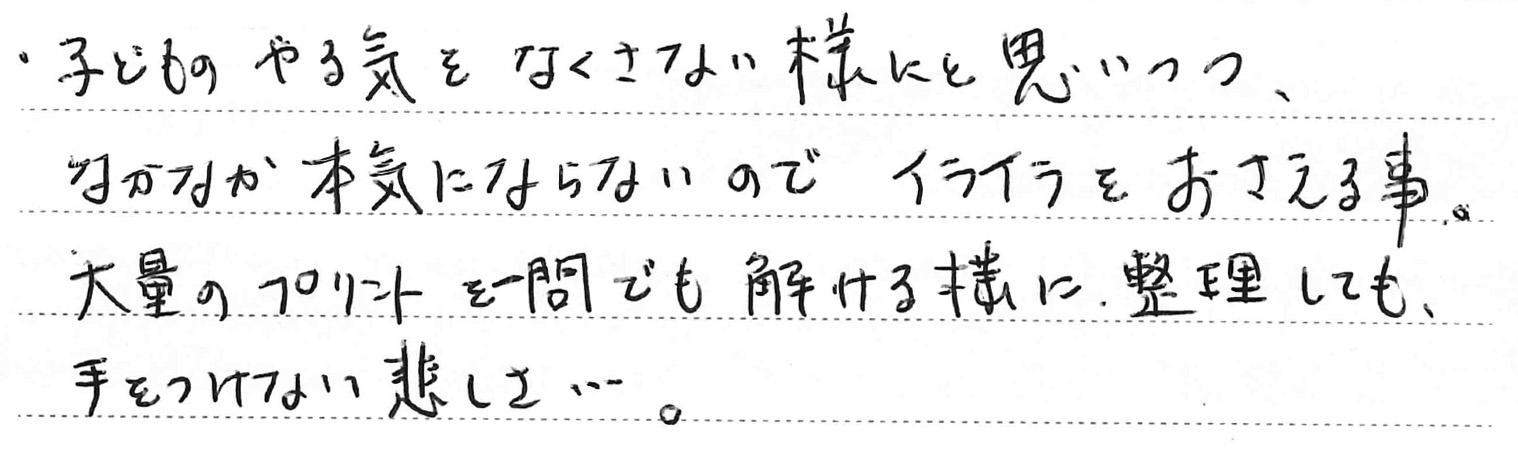 ・子どものやる気をなくさない様にと思いつつ、
なかなか本気にならないので イライラをおさえる事。
大量のプリントを一問でも解ける様に整理しても、
手をつけない悲しさ…。